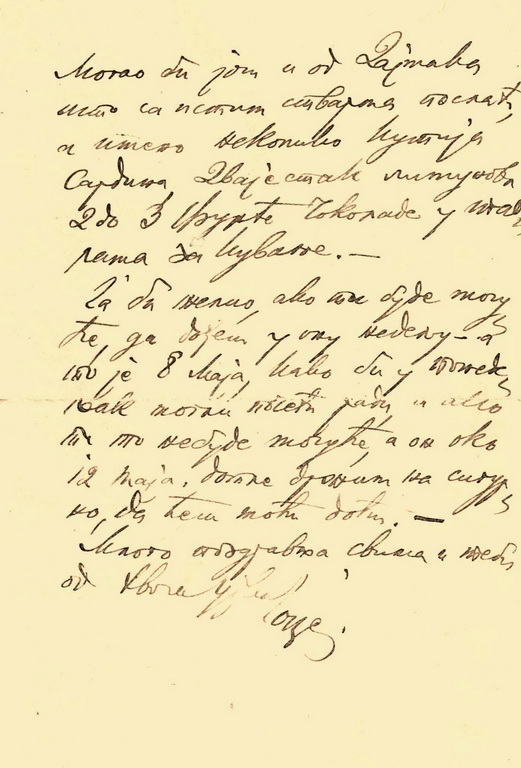 Морао би још и од Зајмака
исто са истим стварма послати,
а имено неколико кутија
Сардина, Двајестак лимунова
2 до 3 фунте Чоколаде у
лама за кување. —
Ја би желио, ако ти буде могу
ће, да дођем у ону недељу – а
то је 8 Маја, како би у понедељ
нак могли почети радит, и ако
ти то небуде могуће, а он око
12 маја. дотле држим на сигур
но, да ћеш моћи доћи. —
Много поздравља свима и теби
од твога